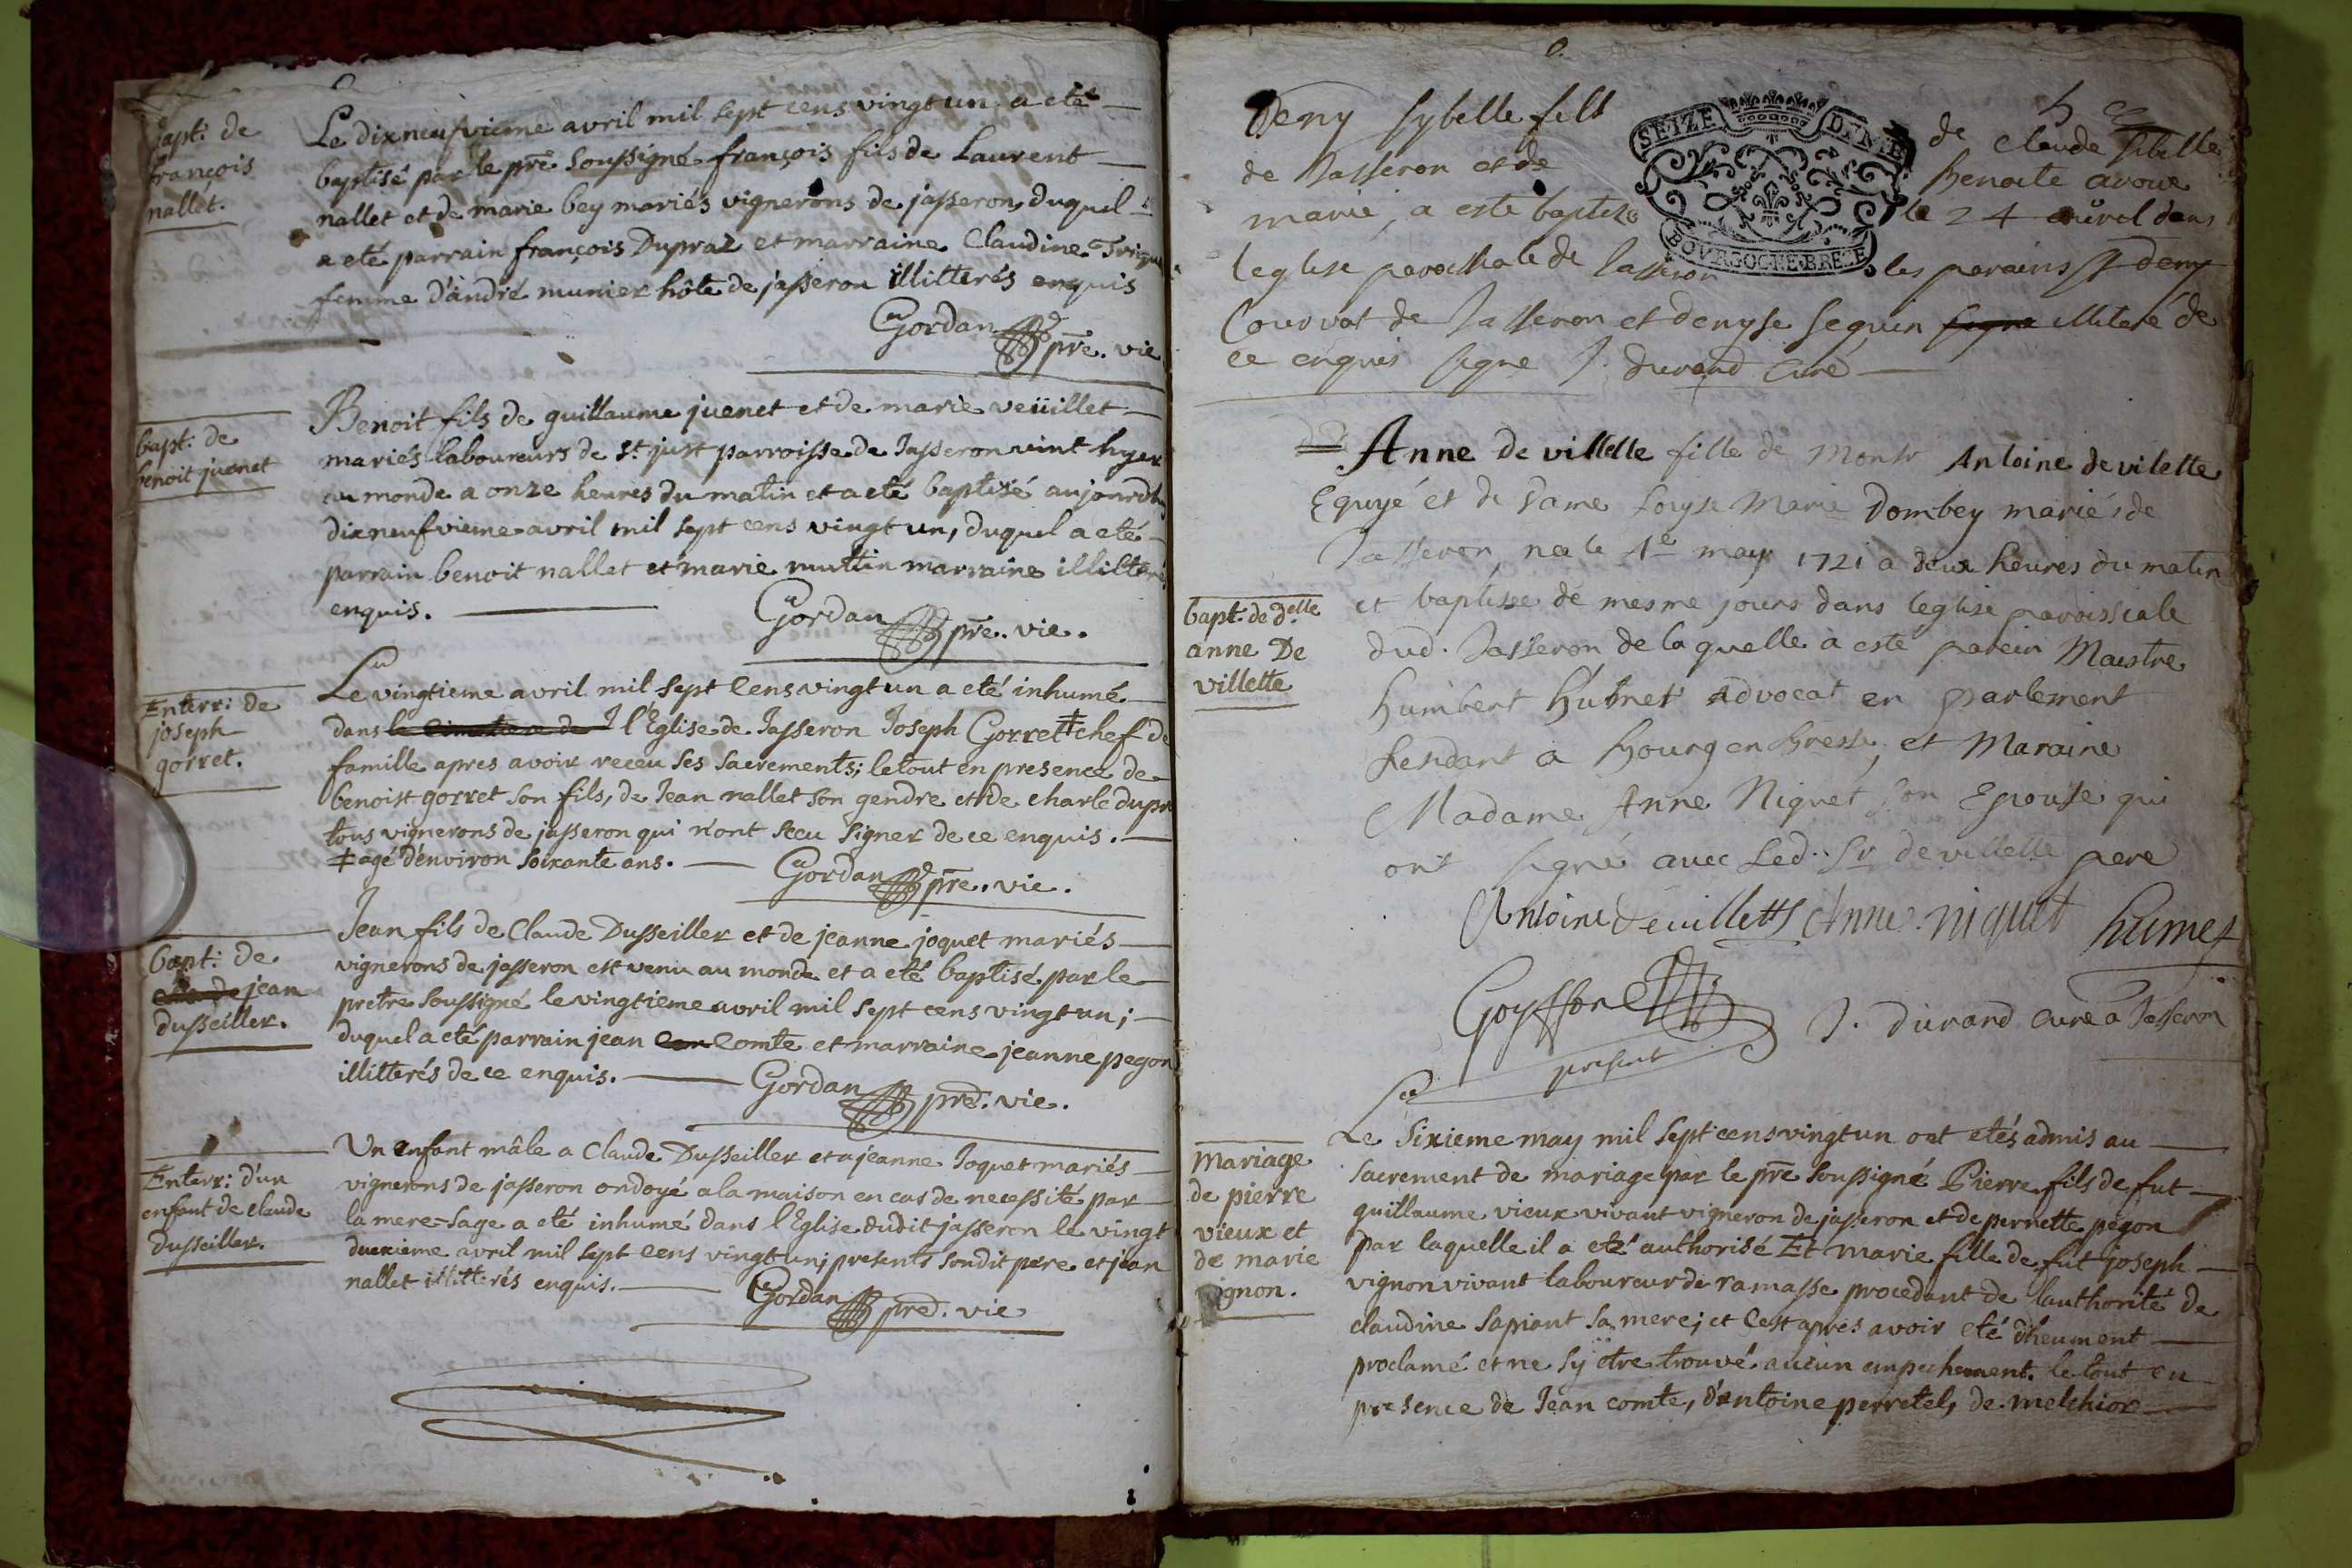 bapt: de
françois
nallet.
Le dixneufvieme avril mil sept cens vingt un a eté
baptisé par le pre soussigné françois fils de Laurent
nallet et de marie bey mariés vignerons de jasseron, duquel
a eté parrain françois Dupraz et marraine Claudine
femme d'andré munier hôte de jasseron illitterés enquis
Gordan pre. vie
bapt: de
benoit juenet
Benoit fils de guillaume juenet et de marie veüillet
mariés laboureurs de st. just parroisse de Jasseron vint hyer
au monde a onze heures du matin et a eté baptisé aujourdhuy
dixneufvieme avril mil sept cens vingt un, duquel a eté
parrain benoit nallet et marie mutin marraine illitterés
enquis.
Gordan pre. vie.
Enterr: de
joseph
gorret.
Le vingtieme avril mil sept cens vingt un a eté inhumé
dans le cimetiere de J l'Eglise de Jasseron Joseph Gorret ‡ chef de
famille apres avoir receu ses sacrements; le tout en presence de
benoist gorret son fils, de Jean nallet son gendre et de charle dupra
tous vignerons de jasseron qui n'ont sceu signer de ce enquis.
‡ agé d'environ soixante ans.
Gordan pre. vie.
bapt: de
jean
dusseiller.
Jean fils de Claude Dusseiller et de jeanne joquet mariés
vignerons de jasseron est venu au monde et a eté baptisé par le
pretre soussigné le vingtieme avril mil sept cens vingt un;
duquel a eté parrain jean com comte et marraine jeanne pegon
illitterés de ce enquis.
Gordan pre. vie.
Enterr: d'un
enfant de claude
dusseiller.
Un enfant mâle a Claude Dusseiller et a jeanne Joquet mariés
vignerons de jasseron ondoyé a la maison en cas de necessité par
la mere-sage a eté inhumé dans l'Eglise dudit jasseron le vingt
duexieme avril mil sept cens vingt un; presents sondit pere et jean
nallet illitterés enquis.
Gordan pre. vie
SEIZE DENIE
BOURGOGNE BRESE
Deny sybelle fils de Claude sibelle
de Jasseron et de benoite avoux
marie, a este baptize le 24 avril dans
leglise parossiale de Jasseron les parains st deny
Couvat de Jasseron et denyse sequin signe illiteré de
ce enquis signe J. durand Curé
bapt: de d.elle
anne De
villette
Anne de villette fille de Monsr Antoine de vilette
Equyé et de dame Louyse Marie Dombey mariés de
Jasseron, neé le 1e may 1721 a deux heures du matin
et baptisse de mesme jours dans leglise paroissiale
dud. Jasseron de laquelle a esté parein Maistre
humbert humet Advocat en parlement
Residant a bourg en bresse, et Maraine
Madame Anne Niquet son Epouse qui
ont signé avec Led. Sr devillette pere
Antoine Deuillette Anne niquet humet
Goyffon
present
J. durand curé a Jasseron
Mariage
de pierre
vieux et
de marie
vignon.
Le sixieme may mil sept cens vingt un ont etés admis au
sacrement de mariage par le pre soussigné Pierre fils de fut
guillaume vieux vivant vigneron de jasseron et de pernette pegon
par laquelle il a eté authorisé Et marie fille de fut joseph
vignon vivant laboureur de ramasse procedant de l'authorité de
claudine sapiant sa mere; et cest apres avoir eté dheument
proclamé et ne sy etre trouvé aucun empechement. le tout en
presence de Jean comte, d'antoine perretel, de melchior